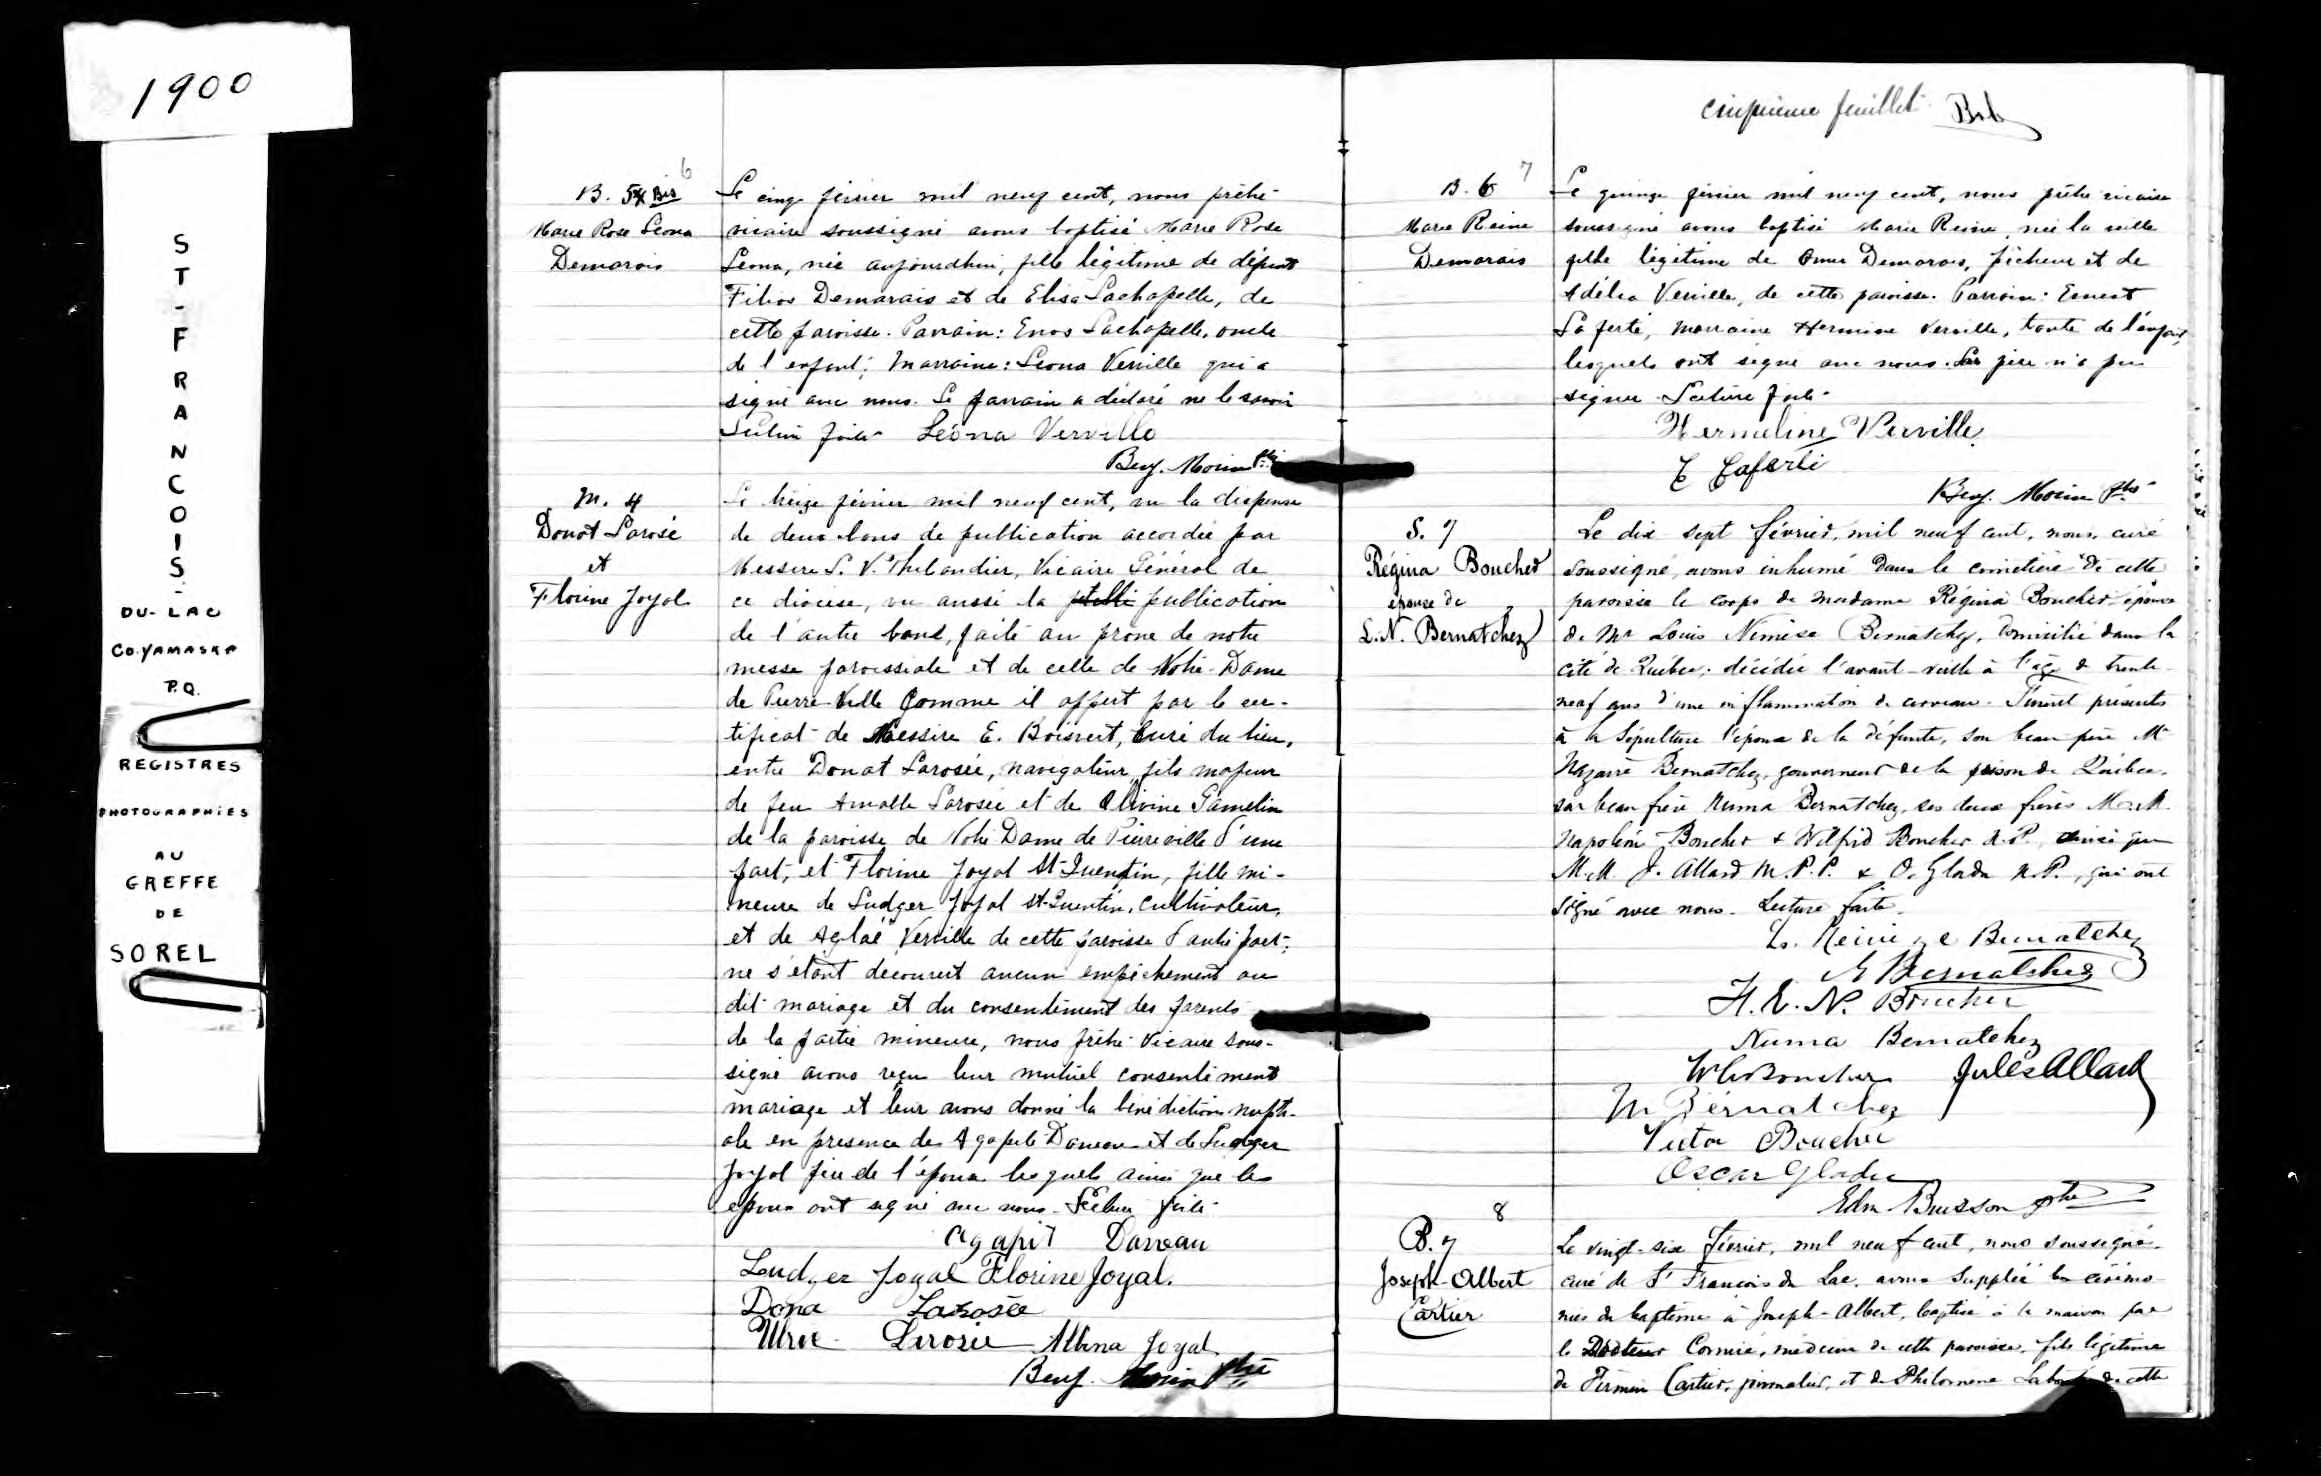 1900
ST-FRANCOIS-
DU-LAC
CO. YAMASKA
P.Q.
REGISTRES
PHOTOGRAPHIÉS
AU
GREFFE
DE
SOREL
6
B. 5 Bis
Marie Rose Léona
Demarais
Le cinq février mil neuf cent, nous prêtre
vicaire soussigné avons baptisé Marie Rose
Léona, née aujourdhui, fille légitime de défunt
Filios Demarais et de Elisa Lachapelle, de
cette paroisse. Parrain: Enos Lachapelle, oncle
de l'enfant; Marraine: Léona Verville qui a
signé avec nous. Le parrain a déclaré ne le savoir
Lecture faite Léona Verville
Benj. Morin Ptre
M. 4
Donat Larosé
et
Florine Joyal
Le treize février mil neuf cent, vu la dispense
de deux bans de publication accordée par
Messire S. V. Thibaudier, Vicaire Général de
ce diocèse, vu aussi la publication
de l'autre band, faite au prône de notre
messe paroissiale et de celle de Notre-Dame
de Pierre-Ville Comme il appert par le cer-
tificat de Messire E. Boisvert, Curé du lieu,
entre Donat Larosée, navigateur, fils majeur
de feu Amable Larosée et de Olivine Gamelin
de la paroisse de Notre Dame de Pierreville d'une
part, et Florine Joyal St-Quentin, fille mi-
neure de Ludger Joyal St-Quentin, Cultivateur,
et de Aglaé Verville de cette paroisse d'autre part,
ne s'étant découvert aucun empêchement au
dit mariage et du consentement des parents
de la partie mineure, nous prêtre Vicaire sous-
signé avons reçu leur mutuel consentement
mariage et leur avons donné la bénédiction nupti-
ale en présence de Agapit Daneau et de Ludger
Joyal père de l'épouse lesquels ainsi que les
époux ont signé avec nous. Lecture faite
Agapit Daneau
Ludger Joyal Florine Joyal.
Dona Larosée
Larosée Albina Joyal
Benj. Morin Ptre
cinquième feuillet
7
B. 6
Marie Reine
Demarais
Le quinze février mil neuf cent, nous prêtre vicaire
soussigné avons baptisé Marie Reine, née la veille
fille légitime de Omer Demarais, pêcheur et de
Adélia Verville, de cette paroisse. Parrain: Ernest
Laferté, marraine Hermine Verville, tante de l'enfant,
lesquels ont signé avec nous. Le père n'a pu
signer. Lecture faite.
Hermeline Verville
E Laferté
Benj. Morin Ptre
S. 7
Régina Boucher
épouse de
L.N. Bernatchez
Le dix sept février, mil neuf cent, nous, curé
soussigné, avons inhumé dans le cimetière de cette
paroisse le corps de madame Régina Boucher épouse
de Mr Louis Némèse Bernatchez, domicilié dans la
cité de Québec; décédée l'avant-veille à l'âge de trente-
neuf ans d'une inflammation de cerveau. Furent présents
à la sépulture l'époux de la défunte, son beau père Mr
Nazaire Bernatchez, gouverneur de la prison de Québec,
son beau frère Numa Bernatchez, ses deux frères M.M.
Napoléon Boucher & Wilfrid Boucher N.P. ainsi que
M.M. J. Allard M.P.P. & O. Gladu N.P., qui ont
signé avec nous. Lecture faite.
L. Bernatchez
N Bernatchez
H. E. N. Boucher
Numa Bernatchez
Boucher Jules Allard
M Bernatchez
Victor Boucher
Oscar Gladu
Edm Buisson ptre
8
B. 7
Joseph-Albert
Cartier
Le vingt-six février, mil neuf cent, nous soussigné
curé de St François du Lac, avons suppléé les cérémo-
nies du baptême à Joseph-Albert, baptisé à la maison par
le Docteur Cormié, médecin de cette paroisse, fils légitime
de Firmin Cartier, journalier, et de Philomène de cette